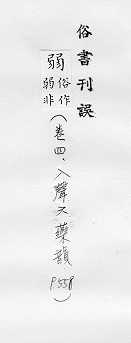 俗書刊誤
弱俗作弱非(卷四、入聲六藥韻P558)